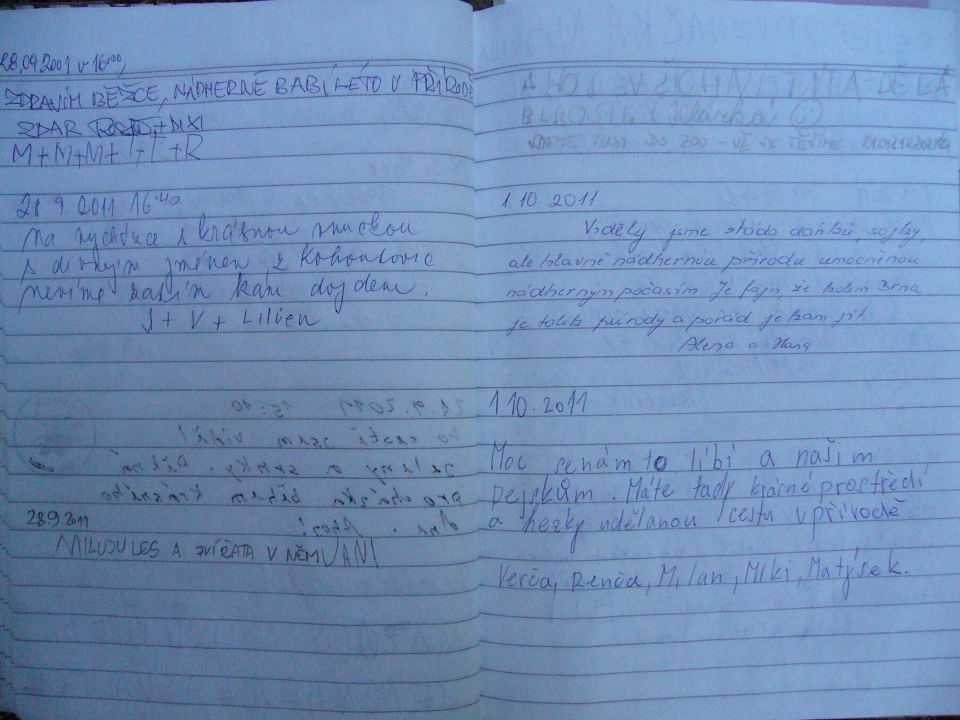 28.09.2001 v 16⁰⁰,
ZDRAVÍM BĚŽCE, NÁDHERNÉ BABÍ LÉTO V PŘÍRODĚ
ZDAR + DIXI
M+M+M+T+T+R
28 9. 2011 16:40
Na vycházce s krásnou vnučkou
s divným jménem z Kohoutovic
nevíme zatím kam dojdem.
J + V + Lilien
28.9 2011
MILUJU LES A ZVÍŘATA V NĚM VANI
1.10.2011
Viděly jsme stádo daňků, sojky,
ale hlavně nádhernou přírodu umocněnou
nádherným počasím. Je fajn, že kolem Brna
je tolik přírody a pořád je kam jít.
Alena a Hana
1.10.2011
Moc se nám to líbí a našim
pejskům. Máte tady krásné prostředí
a hezky udělanou cestu v přírodě
Verča, Renča, Milan, Miki, Matýsek.